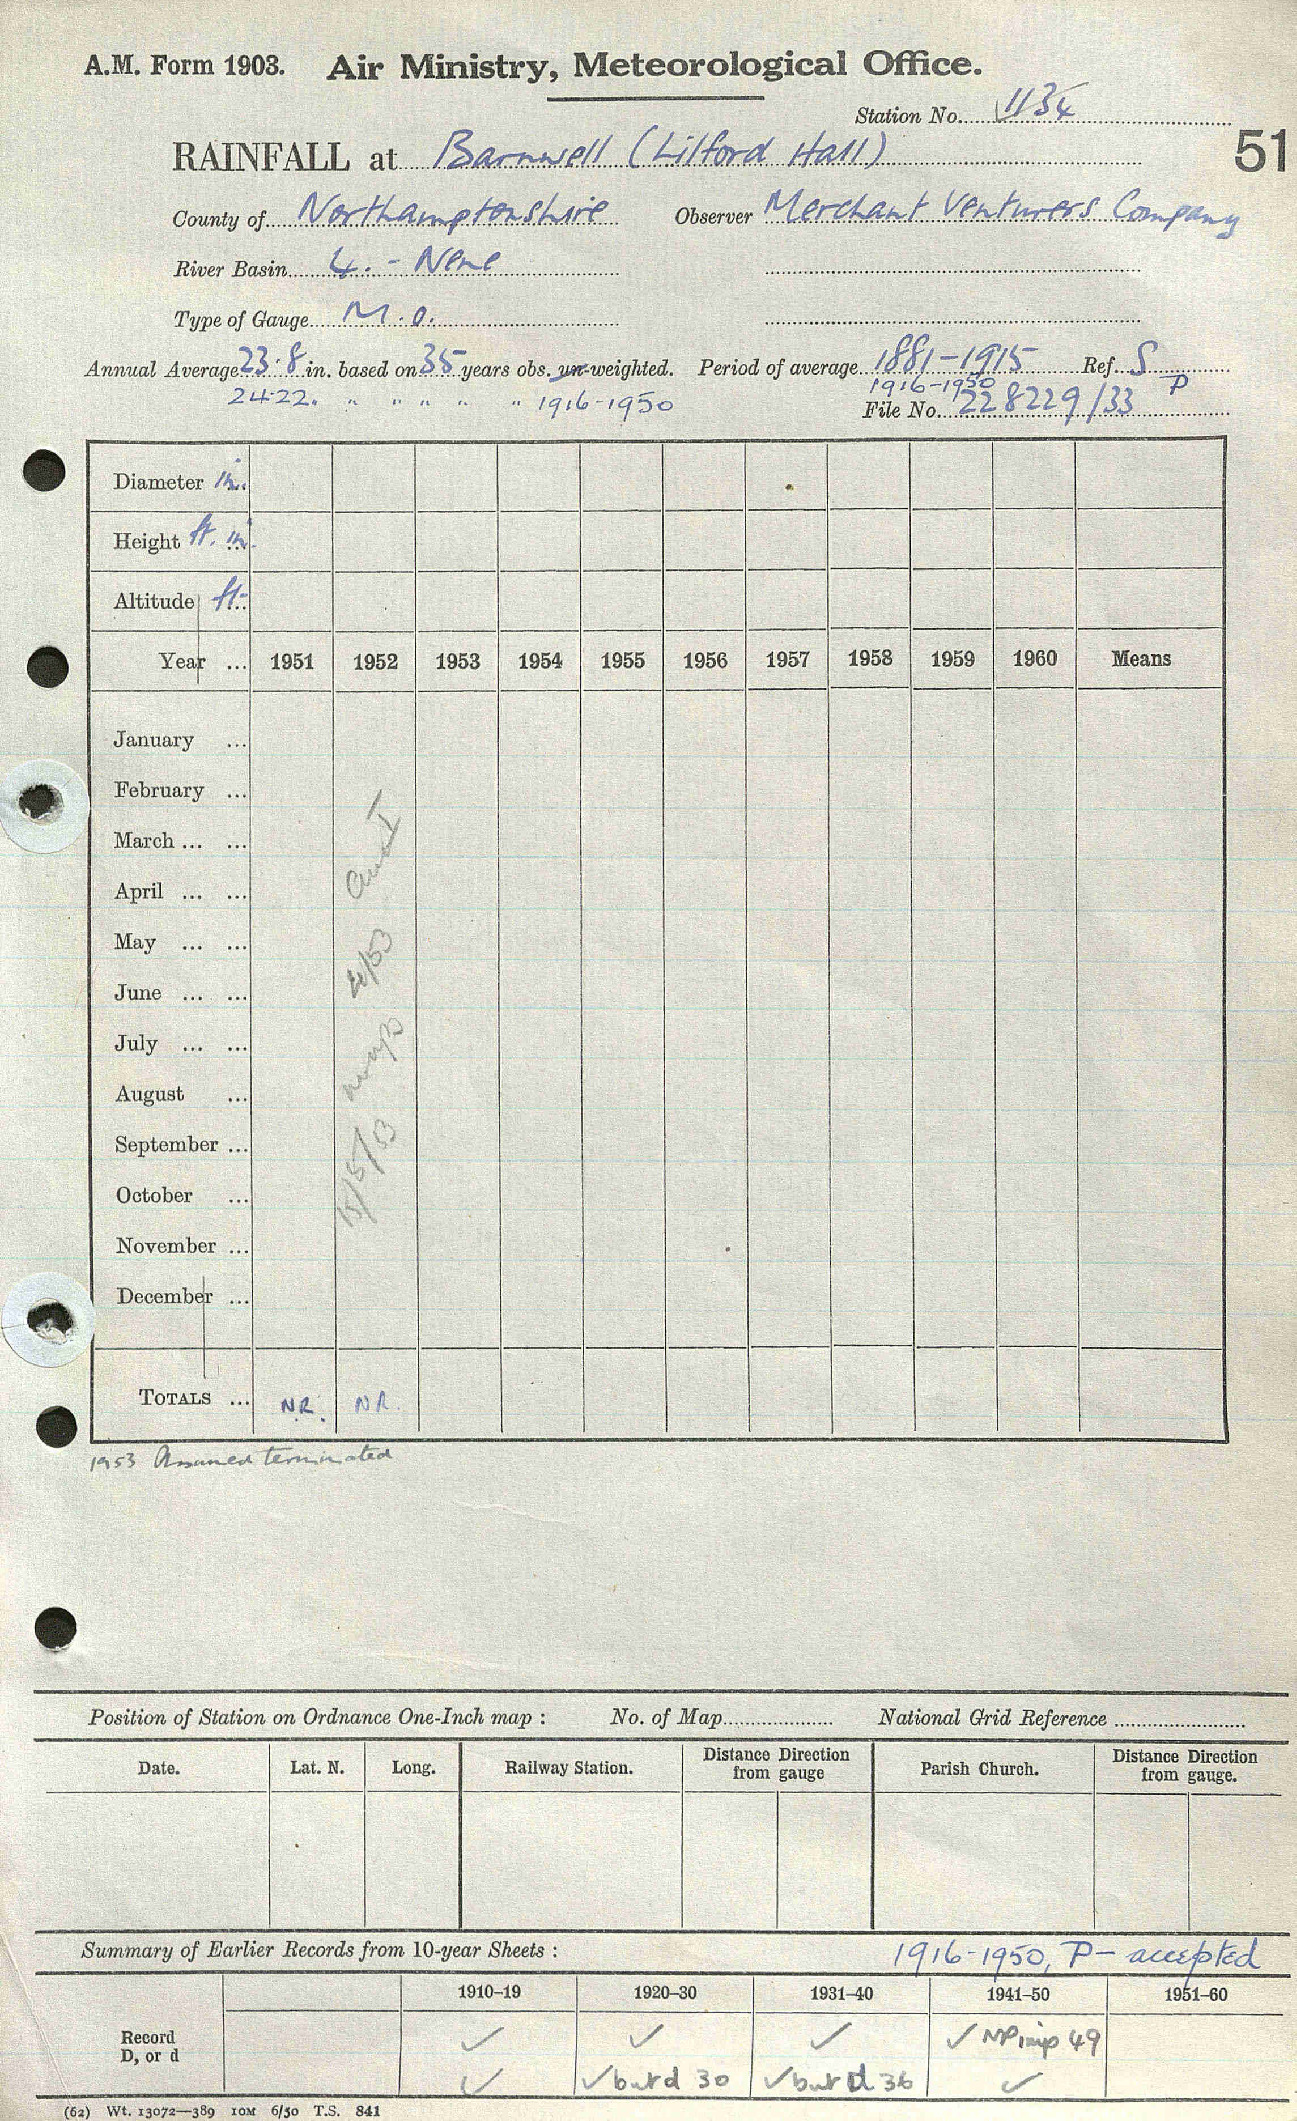 A.M. Form 1903. Air Ministry, Meteorological Office.
Station No. 1134
51
RAINFALL at Barnwell (Lilford Hall)
County of Northamptonshire Observer Merchant Venturers Company
River Basin 4. - Nene
Type of Gauge M.O.
Annual Average 23.8 in. based on 35 years obs. un-weighted. Period of average 1881-1915 Ref. S
24.22. " " " " " 1916-1950 1916-1950 P
File No. 228229/33
Diameter in.
Height ft. in.
Altitude ft.
Year ... 1951 1952 1953 1954 1955 1956 1957 1958 1959 1960 Means
January ...
February ...
March ... ...
April ... ...
May ... ...
June ... ...
July ... ...
August ...
September ...
October ...
November ...
December ...
TOTALS ... N.R. N.R.
1953 Assumed terminated
Position of Station on Ordnance One-Inch map : No. of Map National Grid Reference
Date. Lat. N. Long. Railway Station. Distance Direction from gauge Parish Church. Distance Direction from gauge.
Summary of Earlier Records from 10-year Sheets : 1916-1950, P- accepted
1910-19 1920-30 1931-40 1941-50 1951-60
Record ✓ ✓ ✓ ✓ MP imp 49
D, or d ✓ ✓ but d 30 ✓ but D 36 ✓
(62) Wt. 13072—389 10M 6/50 T.S. 841